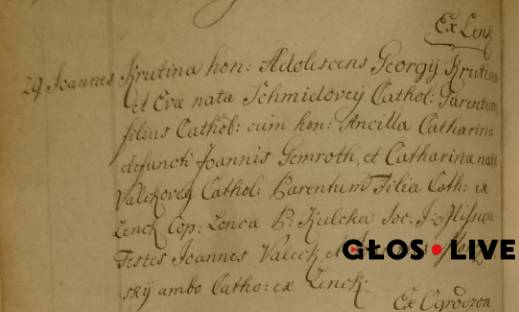 Ex Lenk
29 Joannes Krutina hon: Adolescens Georgÿ Krutina
et Evæ nata Schmidovey Cathol: Parentum,
filius Cathol: cum hon: Ancilla Catharina
defuncti Joannis Gemroth, et Catharinæ nata
Valekovey Cathol: Parentum Filia Cath: ex
Lenck Cop: Loncæ P: Kulcka Soc. J. Missن
Testes Joannes Valeck
GŁOS LIVE
skÿ ambo Catho: ex Lenck.
Ex